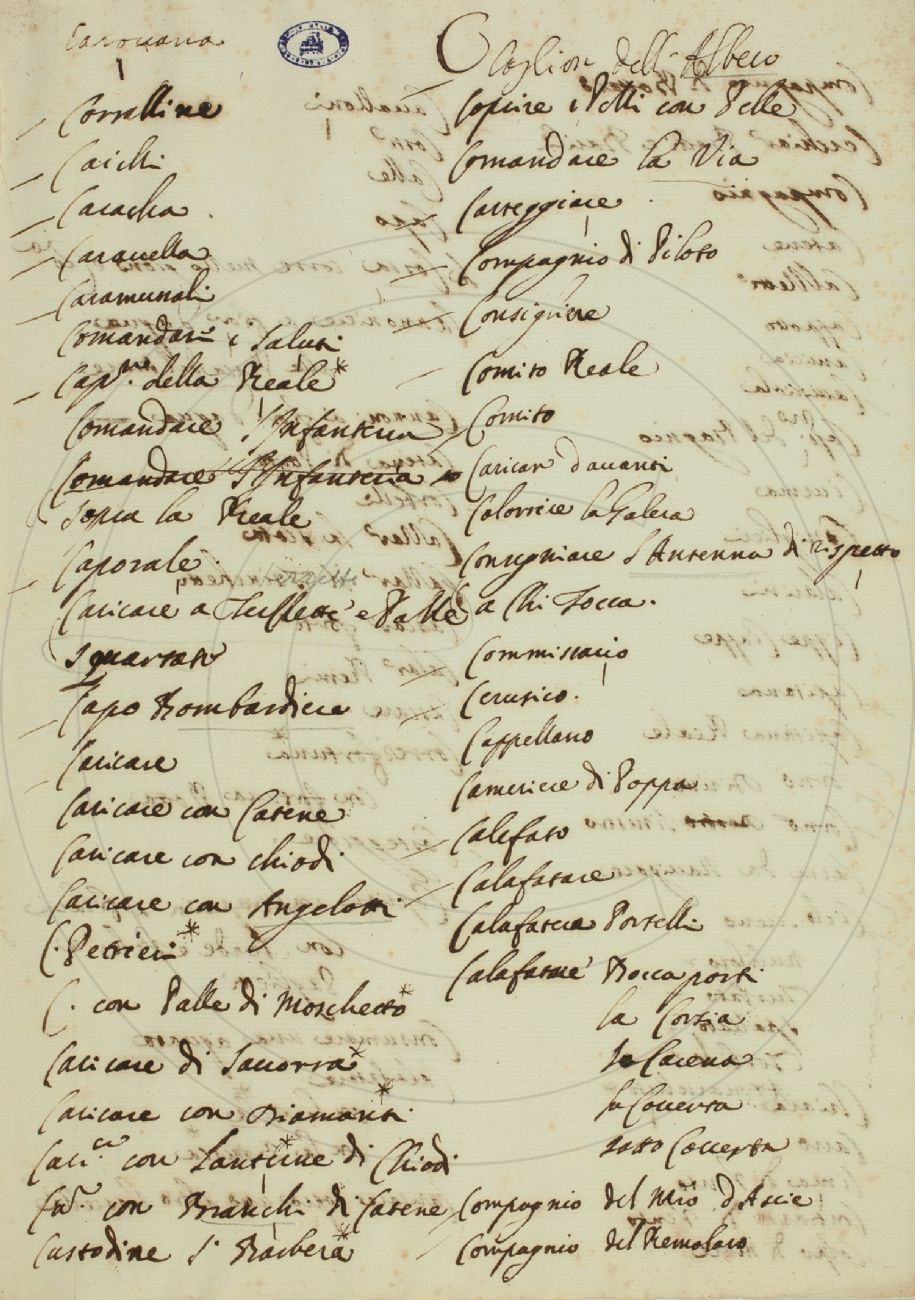 Carovana
Corralline
Caichi
Caracha
Caravella
Caramunali
Comandare i Saluti
Cap.ne della Reale*
Comandare l'Infanteria
Comandare l'Infanteria
sopra la Reale
Caporale
Caricare a e Palle
squartate
Capo Bombardiere
Caricare
Caricare con Catene
Caricare con chiodi
Caricare con Angelotti
C. Petrieri*
C. con Palle di Moschetto*
Caricare di Savorra*
Caricare con Diamanti*
Cari.re con Lanterne* di Chiodi
con Branchi di Catene
Custodire S. Barbera*
Coglioni dell'Albero
Coprire i Pelli con Pelle
Comandare la Via
Carteggiare
Compagnio di Piloto
Consigliere
Comito Reale
Comito
Caricar d'avanti
Colorrire la Galera
Consigniare l'Antenna di rispetto
a Chi Tocca.
Commissario
Cerusico.
Cappellano
Cameriere di Poppa
Calefato
Calafatare
Calafatare Portelli
Calafatare Boccaporti
la Corsia
la Carena
la Coverta
sotto Coverta
Compagnio del Mro d'Ascie
Compagnio del Remolaro